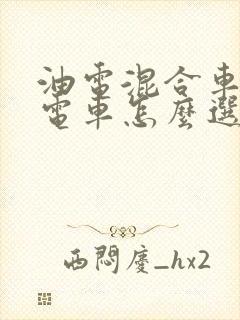 油電混合車
電車怎麼選
西悶慶_hx2